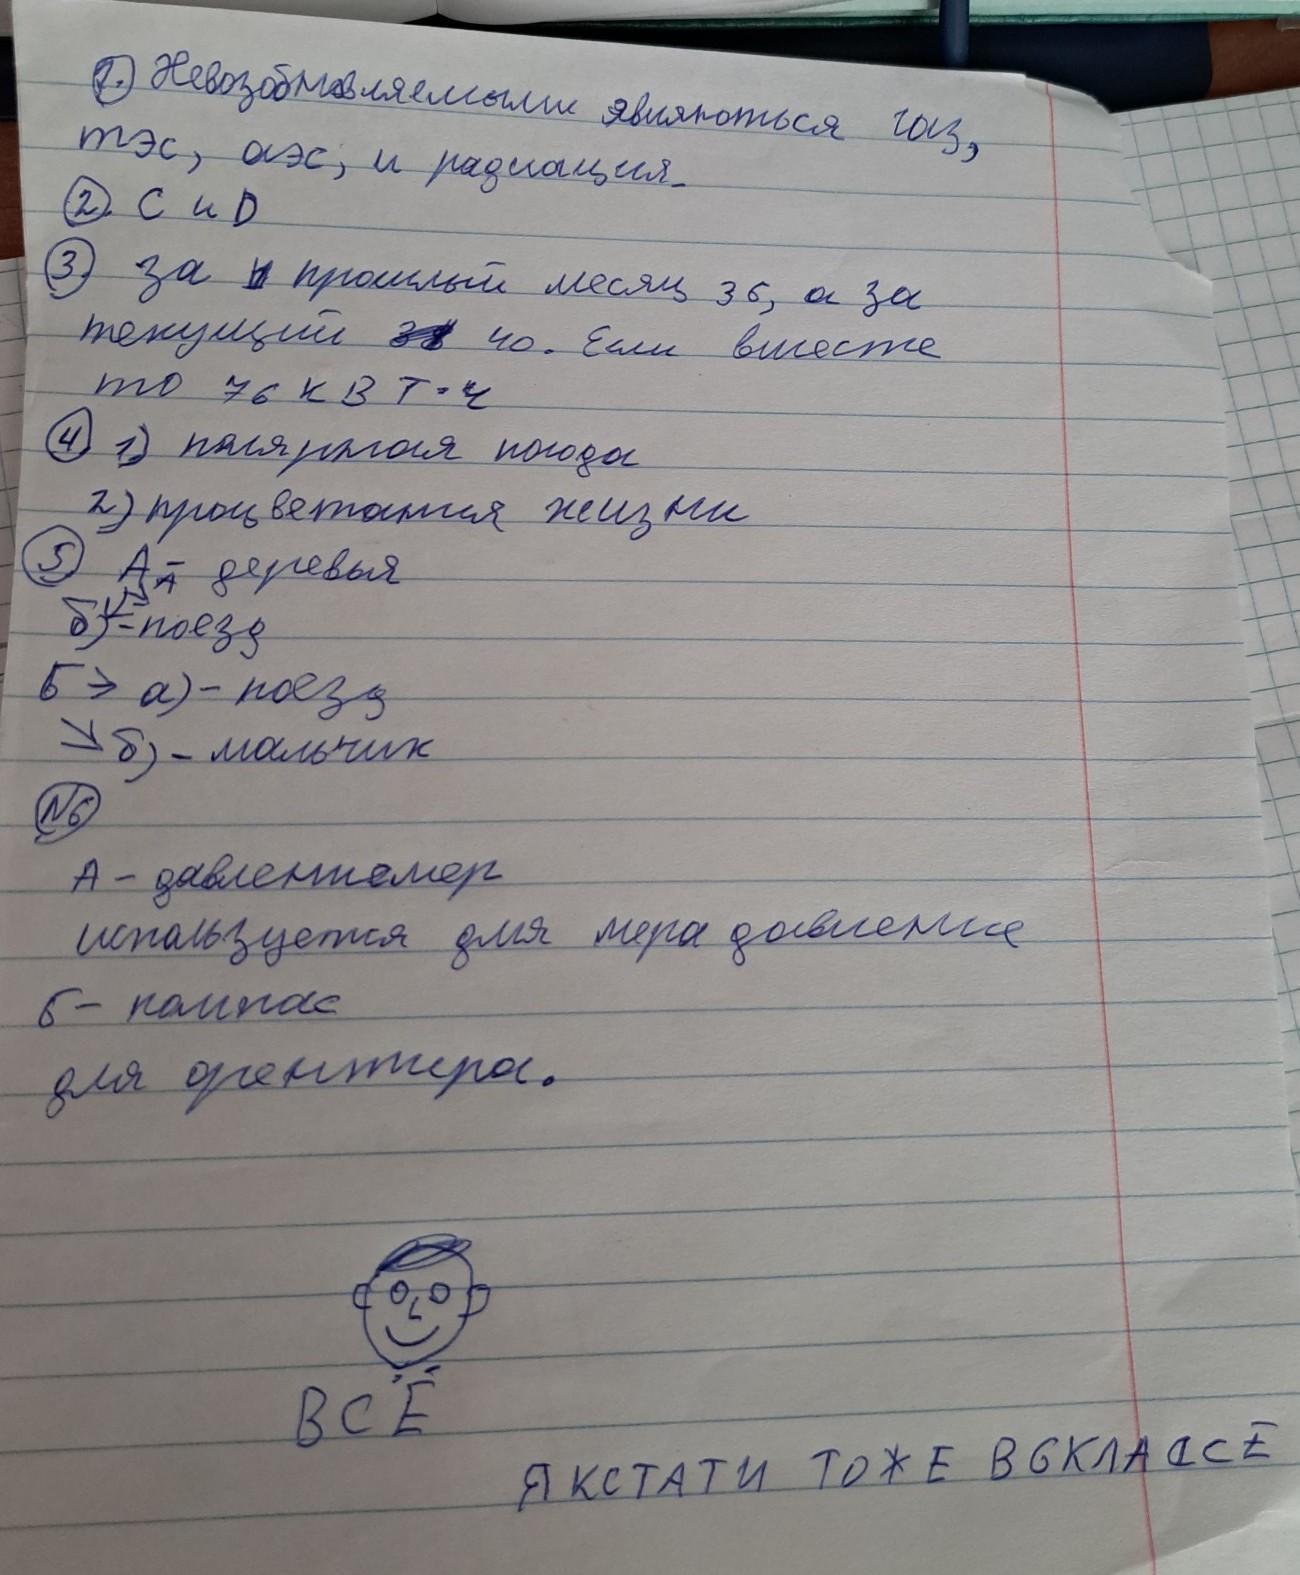 1.) Невозобновляемыми являються газ,
тэс, аэс, и радиация.
2. С и D
3. за прошлый месяц 36, а за
текущий 40. Если вместе
то 76 кВТ·ч
4. 1) полярная погода
2) процветания жизни
5) А А - деревья
б) - поезд
Б → а) - поезд
↘ б) - мальчик
№6
А - давлентемер
используется для мера давление
Б - компас
для орентира.
ВСЁ
Я КСТАТИ ТОЖЕ В 6 КЛАССЕ